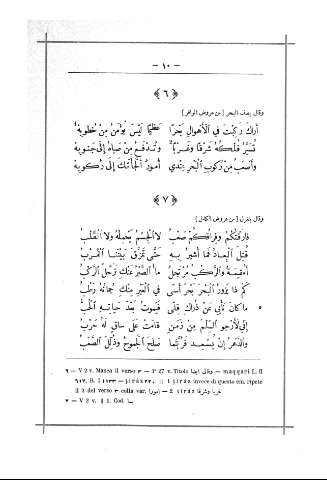 — ١٠ —
﴿ ٦ ﴾
وقال يصف البحر [من عروض الوافر]
أراك ركبت في الأهوال بحرًا عظيمًا ليس يؤمن من خطوبه
تُسيّر فلكه شرقًا وغربًا وتدفع من صباه إلى جنوبه
وأصعب من ركوب البحر عندي أمور ألجأتك إلى ركوبه
﴿ ٧ ﴾
وقال يتغزل [من عروض الكامل]
فارقتكم وفراقكم صعب لا الجسم يحمله ولا القلب
قتل البعاد فما أشير به حتى تمزق بيننا القرب
أمقيمة والركب مرتحل ما الصبر عنك ترحل الركب
كم ذا يزور البحر بحر أسى في العين منك جمانه رطب
ما كان نأي عن ذراك قلى فيموت بعد حياته الحب
إني لأرجو السلم من زمن قامت على ساق له حرب
والدهر إن يسعد فربما صلح الجموح وذلل الصعب
٦ — V 2 v. Manca il verso ٣ — P 27 v. Titolo وقال ايضا — maqqari L. II
٦١٧, B. I ١١٣٣ — § 1 šīrāz invece di questo em. ripete
il 2 del verso ٣ colla var. امورا — 2 šīrāz غربا وشرقا
٧ — V 2 v. § 1. Cod. ما